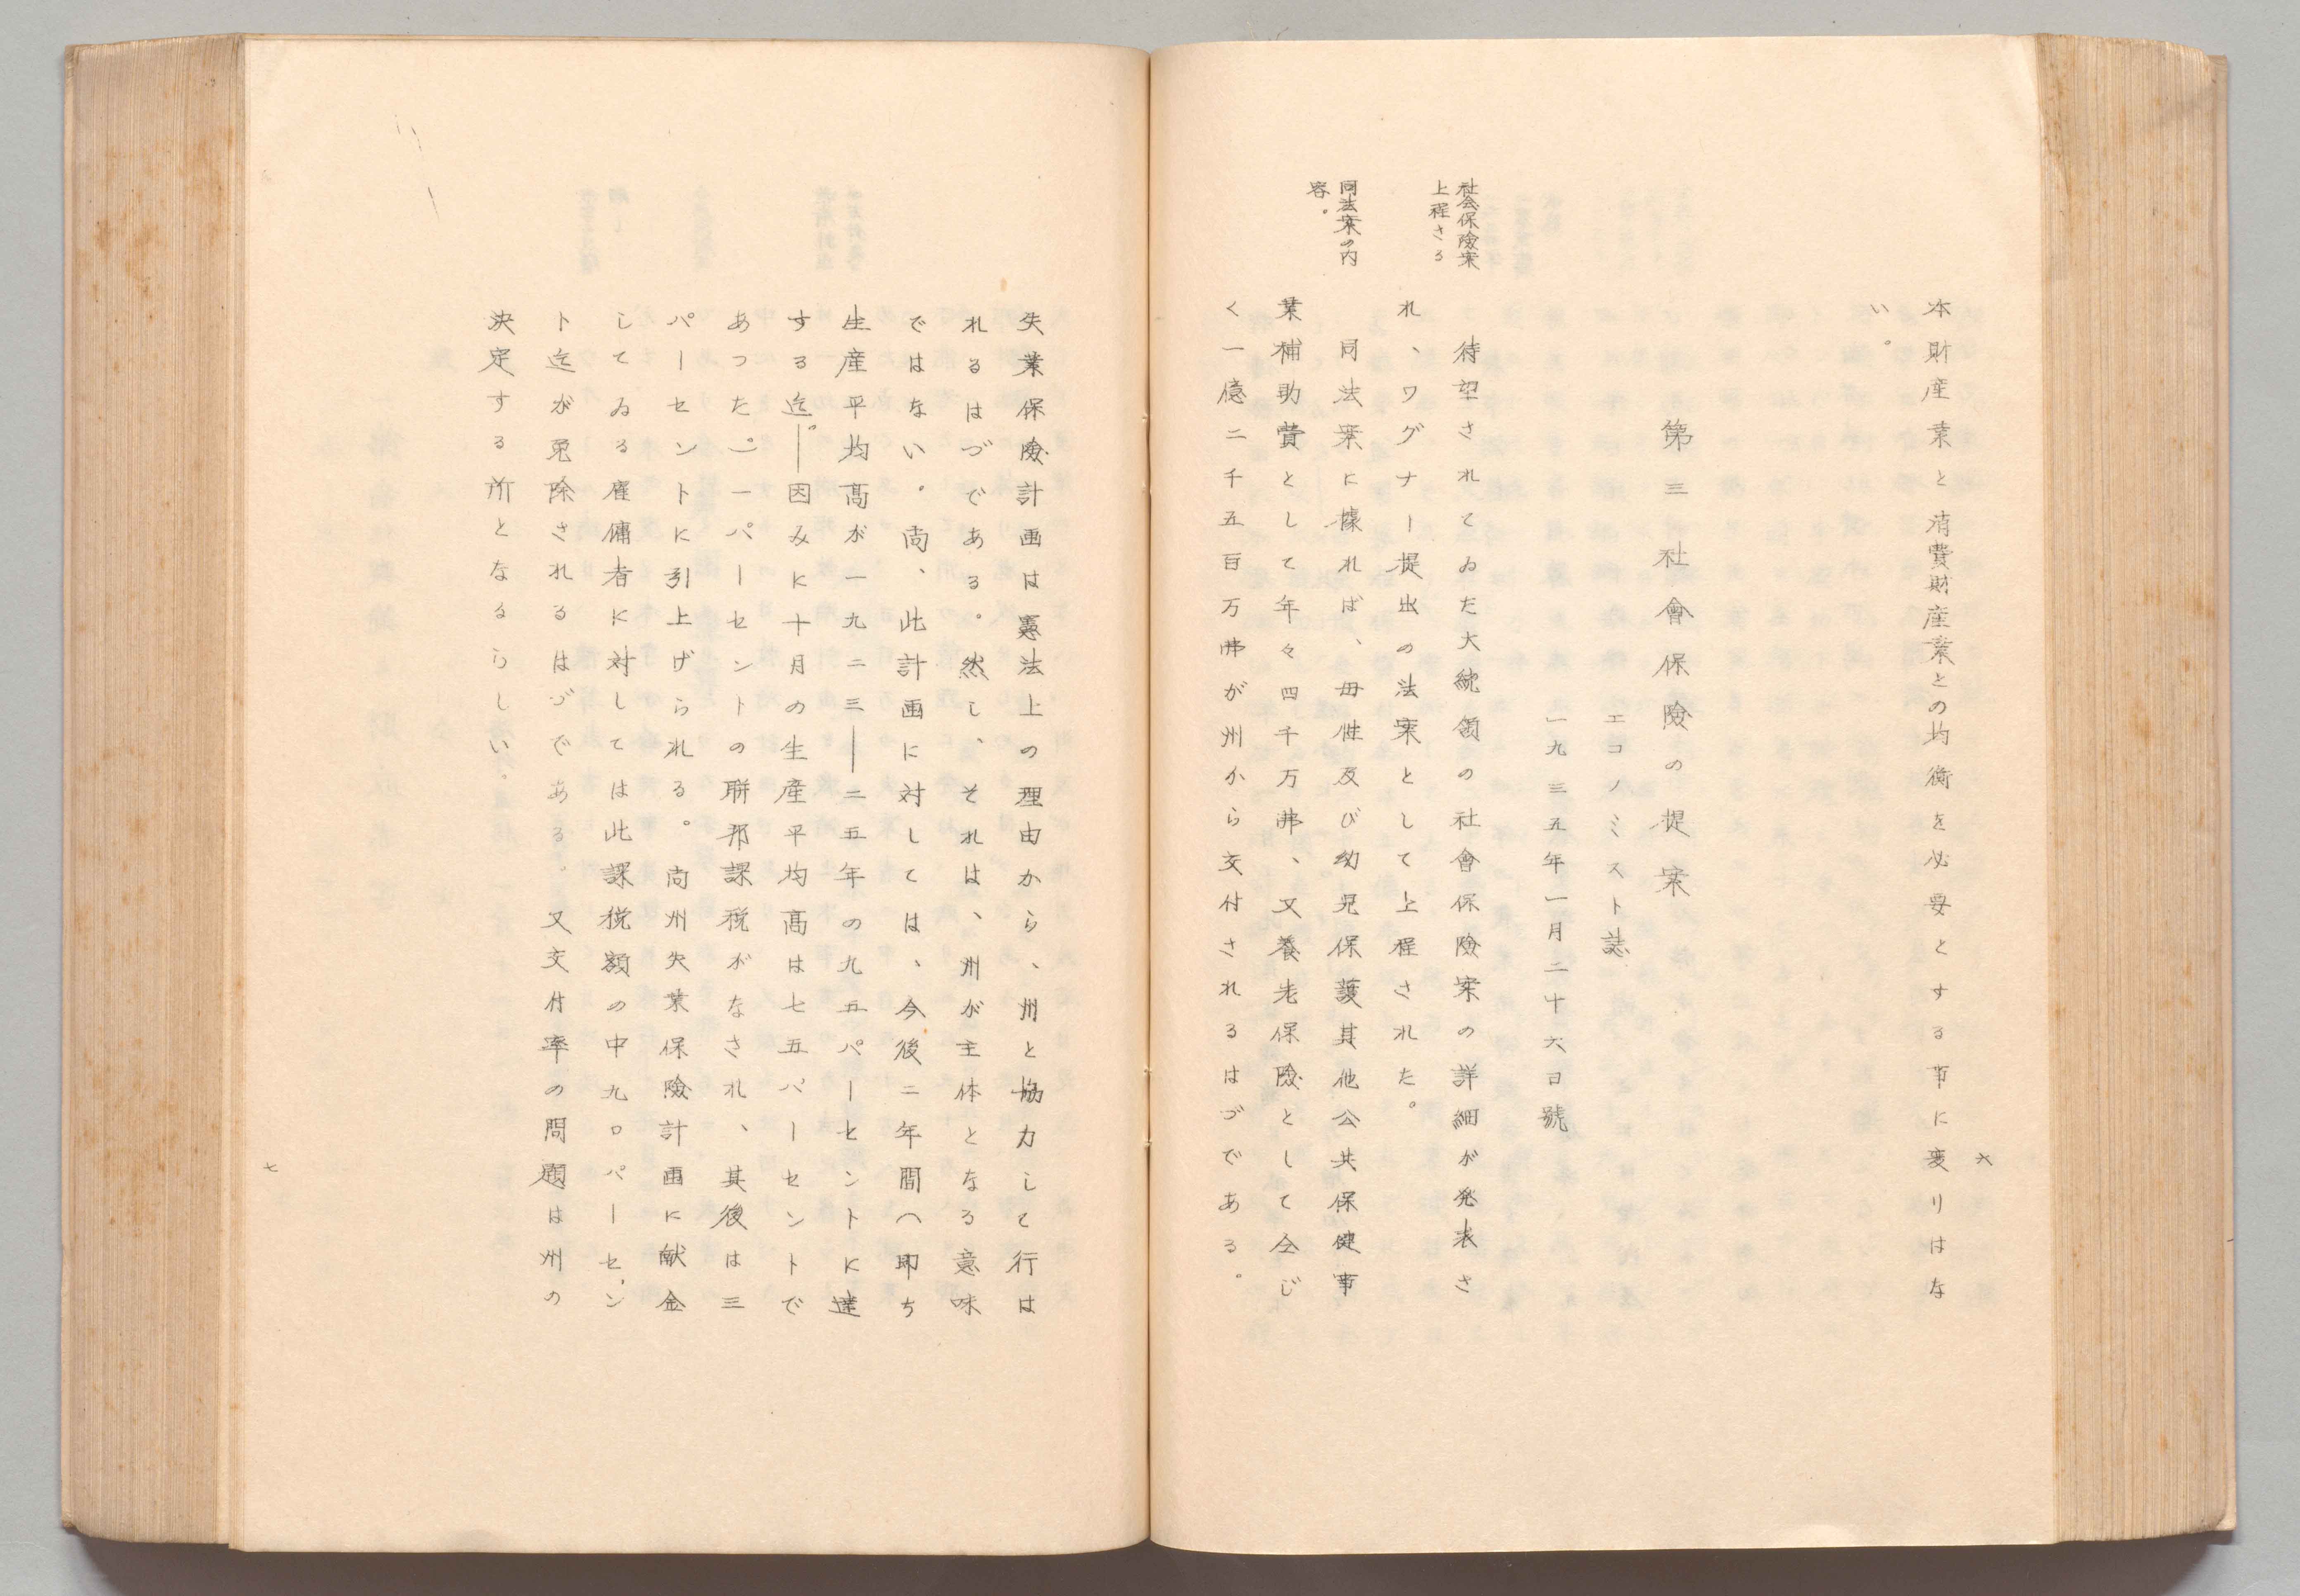 六
本財産業と消費財産業との均衡を必要とする事に変りはな
い。
第三 社會保險の提案
エコノミスト誌
一九三五年一月二十六日號
社会保險案
上程さる
待望されてゐた大統領の社會保險案の詳細が発表さ
れ、ワグナー提出の法案として上程された。
同法案の内
容。
同法案に據れば、母性及び幼児保護其他公共保健事
業補助費として年々四千万弗、又養老保険として仝じ
く一億二千五百万弗が州から交付されるはづである。
失業保險計画は憲法上の理由から、州と協力して行は
れるはづである。然し、それは、州が主体となる意味
ではない。尚、此計画に対しては、今後二年間(即ち
生産平均髙が一九二三——二五年の九五パーセントに達
する迄。——因みに十月の生産平均髙は七五パーセントで
あった。)一パーセントの聯邦課税がなされ、其後は三
パーセントに引上げられる。尚州失業保險計画に献金
してゐる雇傭者に対しては此課税額の中九〇パーセン
ト迄が免除されるはづである。又交付率の問題は州の
決定する所となるらしい。
七